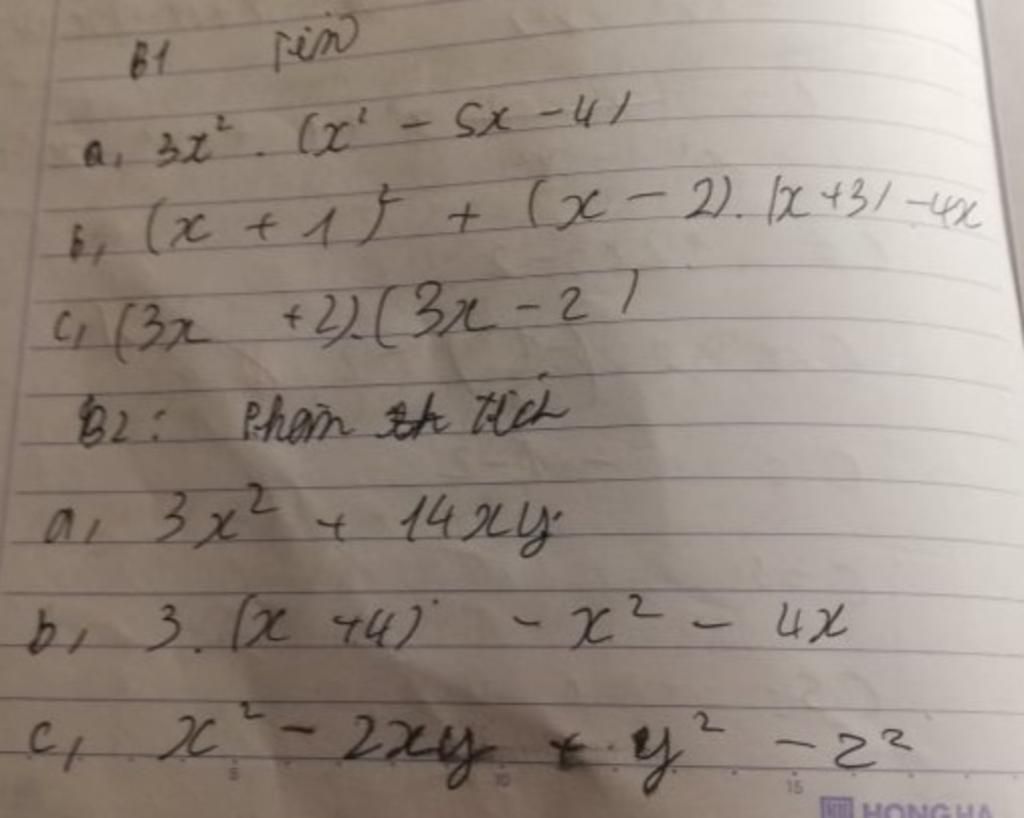 B1 Tính
a, 3x² . (x² - 5x - 4)
b, (x + 1)² + (x - 2). (x + 3) - 4x
c, (3x + 2).(3x - 2)
B2: Phân tích
a, 3x² + 14xy
b, 3. (x + 4) - x² - 4x
c, x² - 2xy + y² - z²
5 10 15
HONG HA